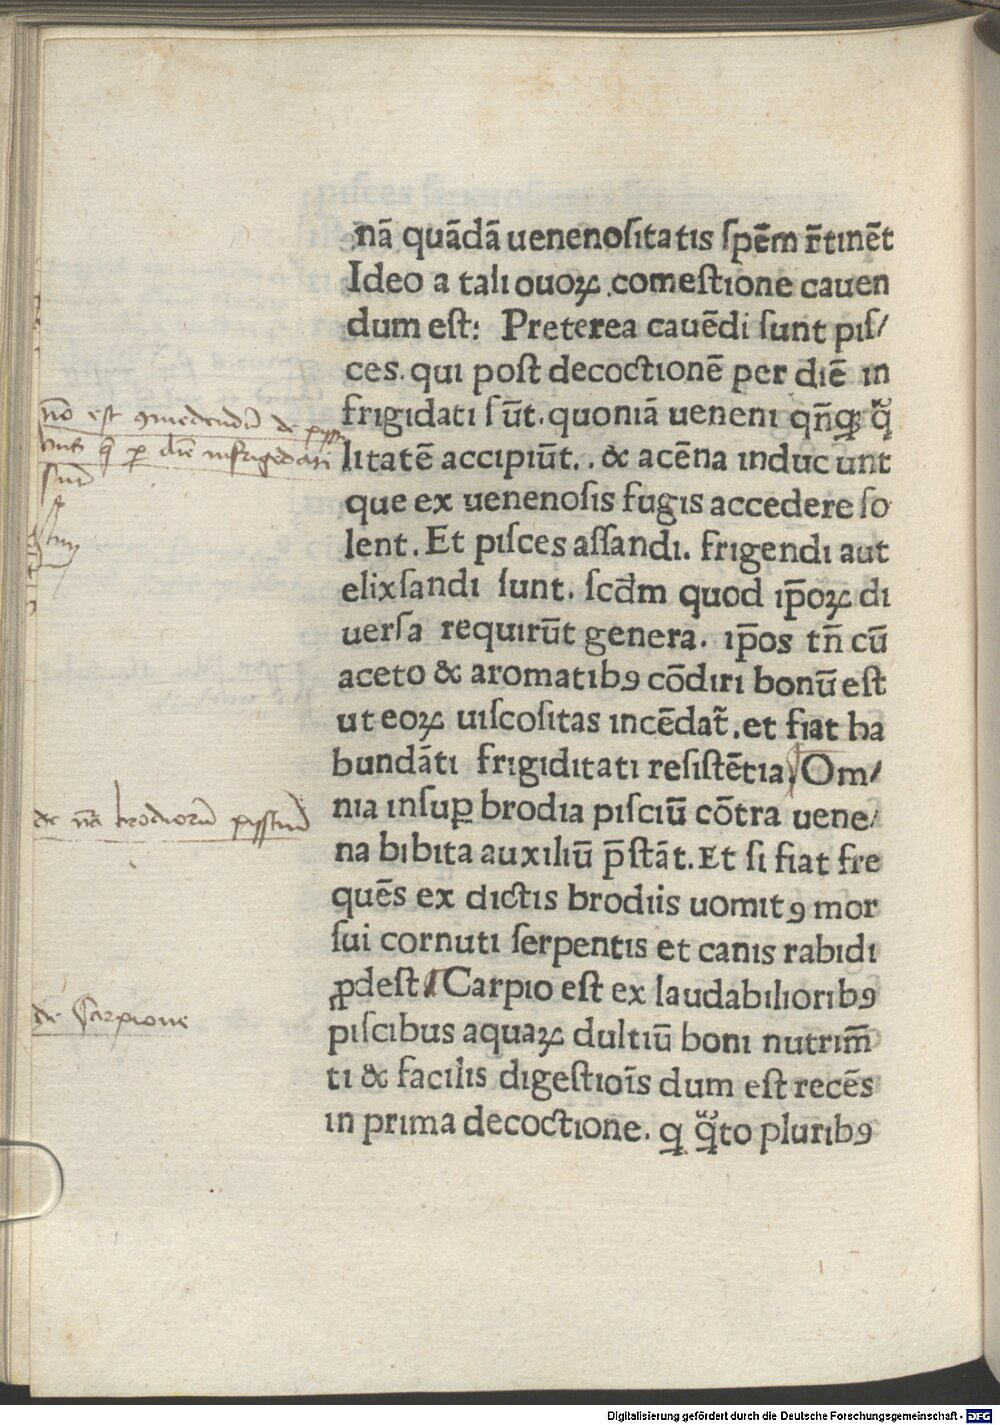 nā quādā uenenoſitatis ſpēm r̄tinēt
Ideo a tali ouoꝝ comeſtione cauen
dum eſt: Preterea cauēdi ſunt piſ/
ces. qui poſt decoctionē per diē in
frigidati ſūt. quoniā ueneni qn̄qꝫ qͣ̄
litatē accipiūt. . & acēna induc unt
que ex uenenoſis fugis accedere ſo
lent. Et piſces aſſandi. frigendi aut
elixſandi ſunt. ſcd̄m quod ip̄oꝝ di
uerſa requirūt genera. ip̄os tn̄ cū
aceto & aromatibꝯ cōdiri bonū eſt
ut eoꝝ uiſcoſitas incēdat᷑. et fiat ha
bundāti frigiditati reſiſtētia. Om/
nia inſuꝑ brodia piſciū cōtra uene/
na bibita auxiliū p̄ſtāt. Et ſi fiat fre
quēs ex dictis brodiis uomitꝯ mor
ſui cornuti ſerpentis et canis rabidi
ꝓdeſt Carpio eſt ex laudabilioribꝯ
piſcibus aquaꝝ dultiū boni nutrim̄
ti & facilis digeſtiōis dum eſt recēs
in prima decoctione. q qͣ̄to pluribꝯ
nō est ꝯmedendū de piss
infrigedati
sunt
de nā brodiorū pissiū
de Carpione
Digitalisierung gefördert durch die Deutsche Forschungsgemeinschaft - DFG